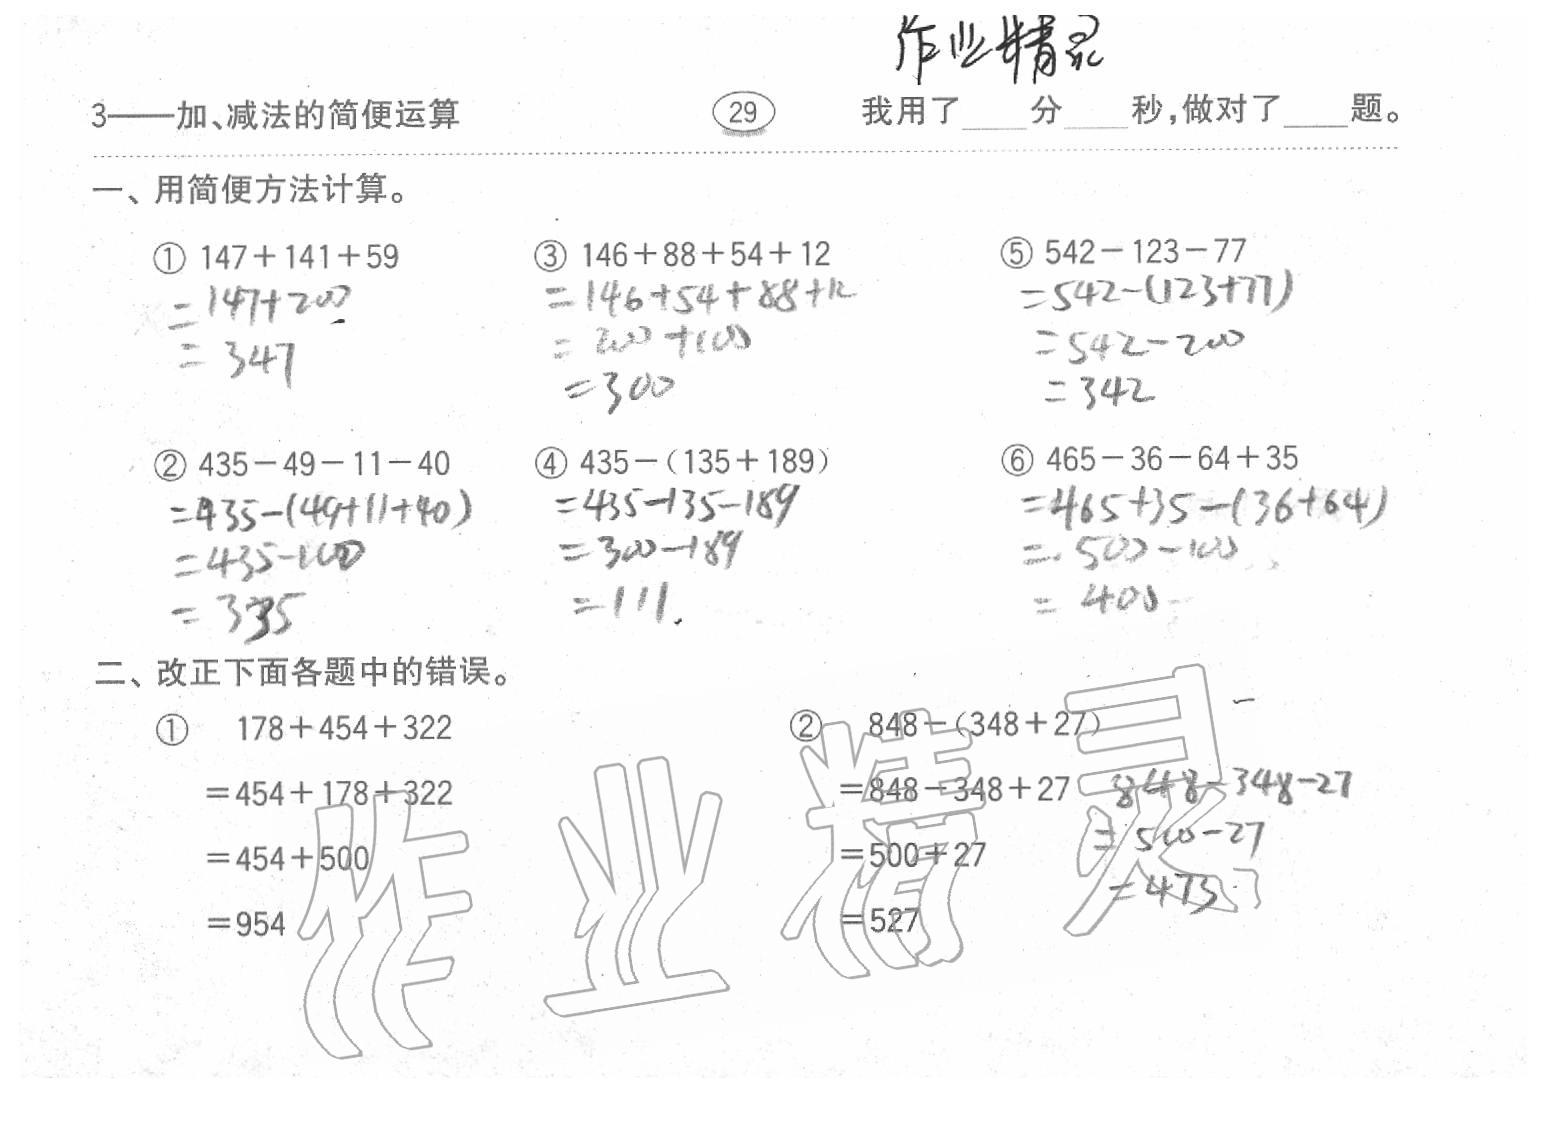 作业精灵
3——加、减法的简便运算 29 我用了____分____秒,做对了____题。
一、用简便方法计算。
① 147+141+59
=147+200
=347
③ 146+88+54+12
=146+54+88+12
=200+100
=300
⑤ 542-123-77
=542-(123+77)
=542-200
=342
② 435-49-11-40
=435-(49+11+40)
=435-100
=335
④ 435-(135+189)
=435-135-189
=300-189
=111.
⑥ 465-36-64+35
=465+35-(36+64)
=500-100
=400
二、改正下面各题中的错误。
① 178+454+322
=454+178+322
=454+500
=954
② 848-(348+27)
=848-348+27
=500+27
=527
848-348-27
=500-27
=473
作业精灵